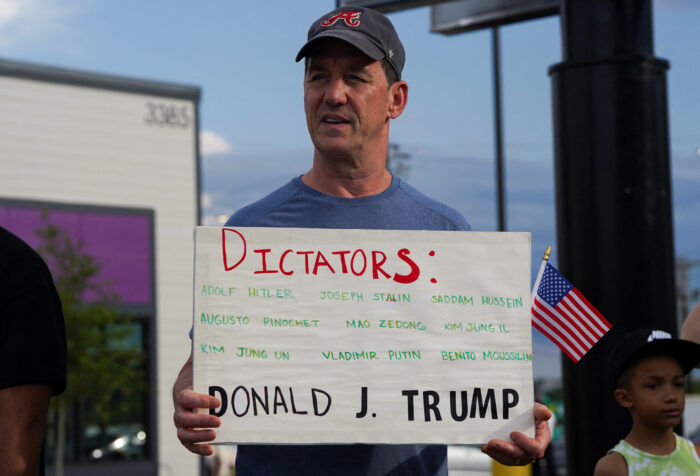 3385
DICTATORS:
ADOLF HITLER JOSEPH STALIN SADDAM HUSSEIN
AUGUSTO PINOCHET MAO ZEDONG KIM JUNG IL
KIM JUNG UN VLADIMIR PUTIN BENITO MOUSSILINI
DONALD J. TRUMP